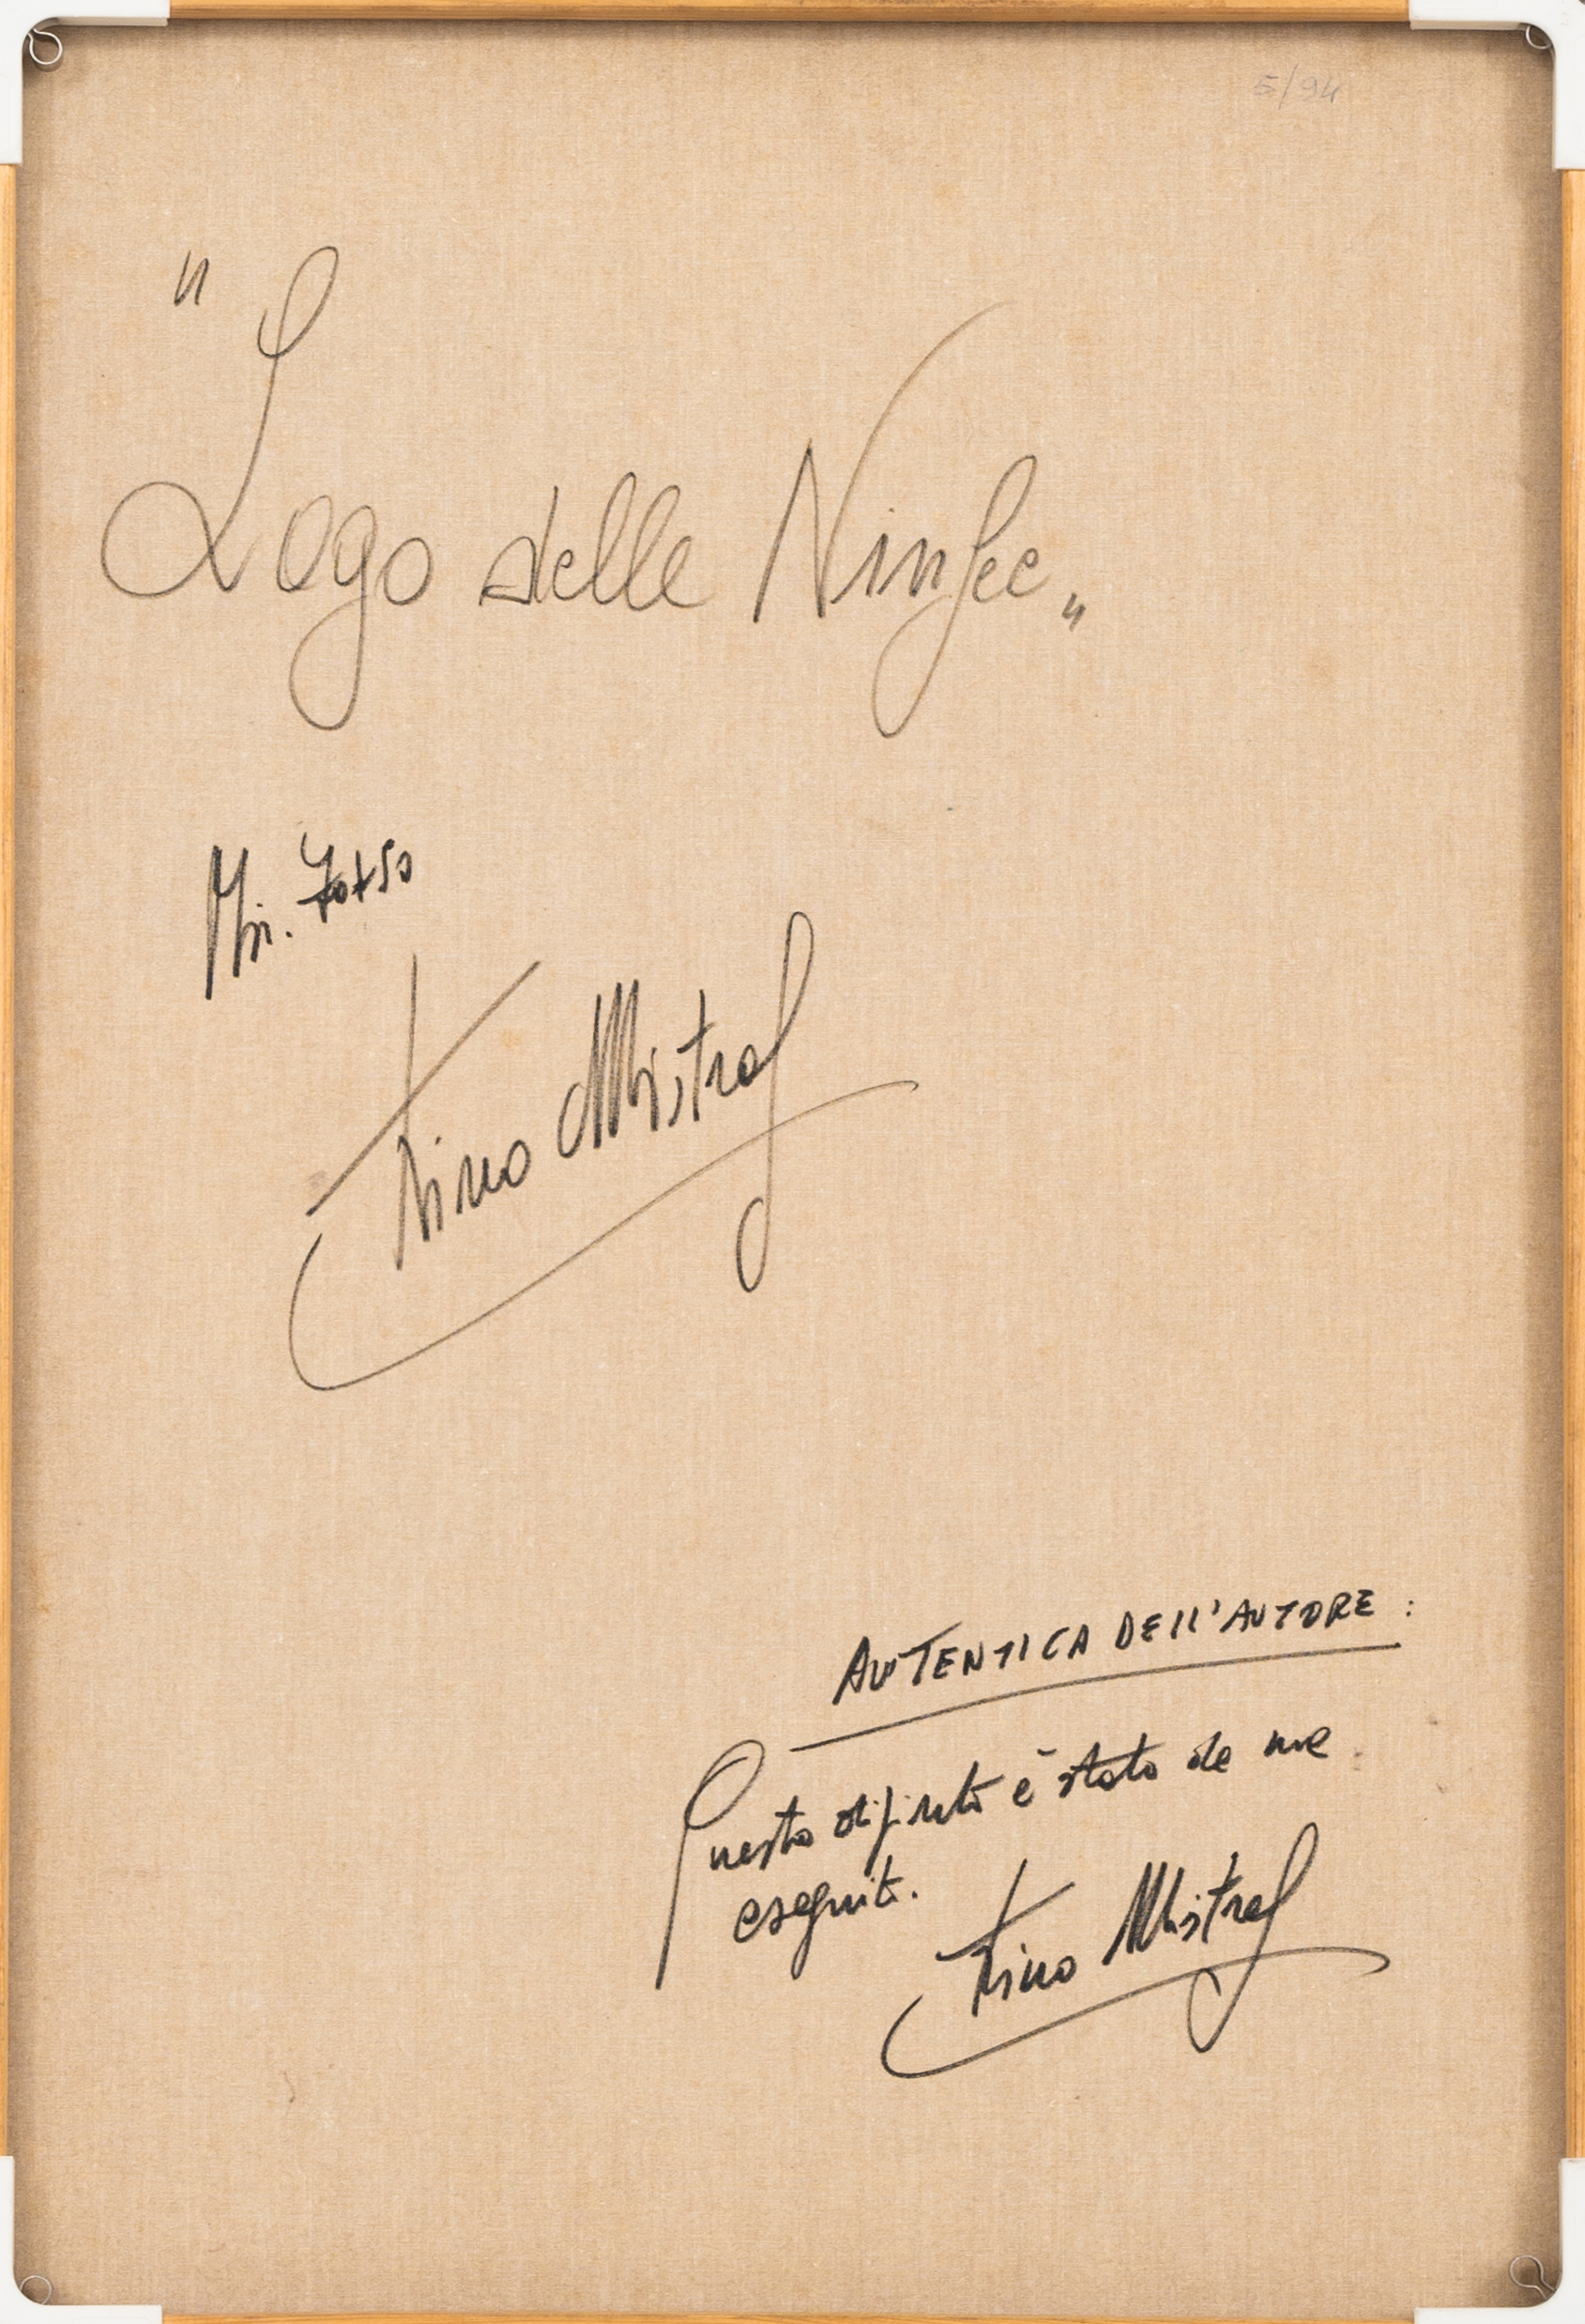 5/94
"Lago delle Ninfee„
Mis. 70x50
Nino Mistral
AUTENTICA DELL'AUTORE:
Questo dipinto è stato da me
eseguito.
Nino Mistral